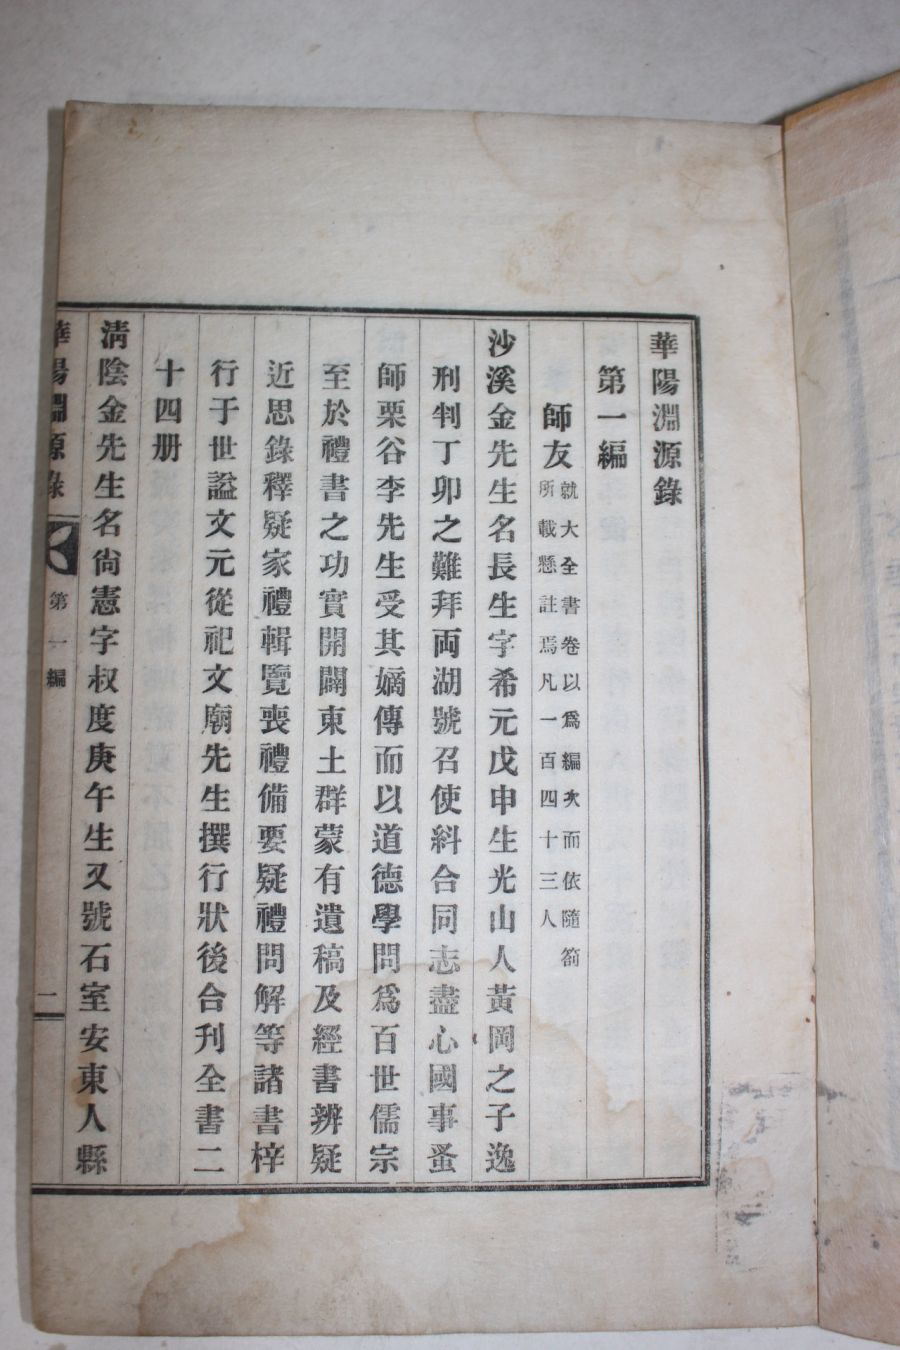 華陽淵源錄
第一編
師友
就大全書卷以爲編次而依隨箚
所載懸註焉凡一百四十三人
沙溪金先生名長生字希元戊申生光山人黃岡之子逸
刑判丁卯之難拜両湖號召使糾合同志盡心國事蚤
師栗谷李先生受其嫡傳而以道德學問爲百世儒宗
至於禮書之功實開闢東土群蒙有遺稿及經書辨疑
近思錄釋疑家禮輯覽喪禮備要疑禮問解等諸書梓
行于世謚文元從祀文廟先生撰行狀後合刊全書二
十四册
淸陰金先生名尙憲字叔度庚午生又號石室安東人縣
華陽淵源錄 第一編 一